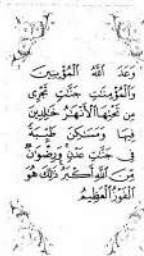 وَعَدَ اللَّهُ الْمُؤْمِنِينَ
وَالْمُؤْمِنَاتِ جَنَّاتٍ تَجْرِي
مِن تَحْتِهَا الْأَنْهَارُ خَالِدِينَ
فِيهَا وَمَسَاكِنَ طَيِّبَةً
فِي جَنَّاتِ عَدْنٍ وَرِضْوَانٌ
مِّنَ اللَّهِ أَكْبَرُ ذَٰلِكَ هُوَ
الْفَوْزُ الْعَظِيمُ